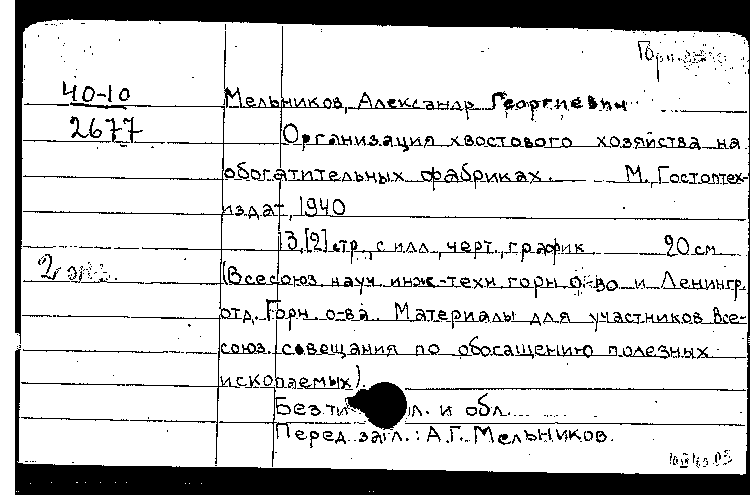 Горн.
40-10
2677
Мельников, Александр Георгиевич
Организация хвостового хозяйства на
обогатительных фабриках. М., Гостоптех-
издат, 1940
13,[2] стр., с илл., черт., график 20 см
2 экз.
(Всесоюз. науч. инж.-техн. горн. о-во и Ленингр.
отд. Горн. о-ва. Материалы для участников Все-
союз. совещания по обогащению полезных
ископаемых).
Без ти л. и обл.
Перед загл.: А.Г. Мельников.